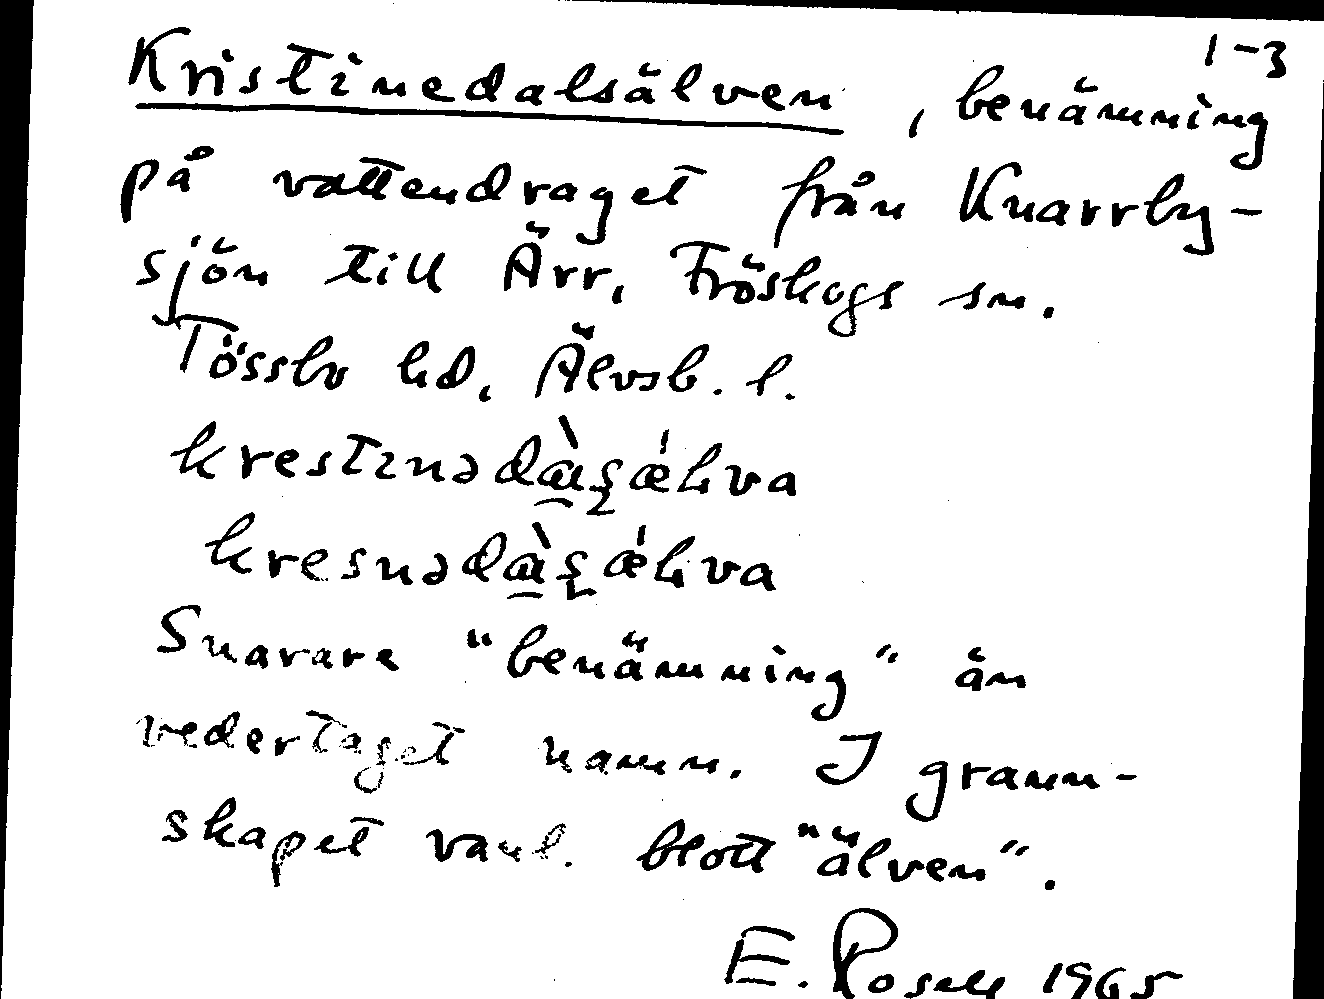 1-3
Kristinedalsälven, benämning
på vattendraget från Knarrby-
sjön till Ärr, Fröskogs sn.
Tössbo hd, Älvsb. l.
Snarare "benämning" än
vedertaget namn. I gramm-
skapet vanl. blott "älven".
E. Rosell 1965